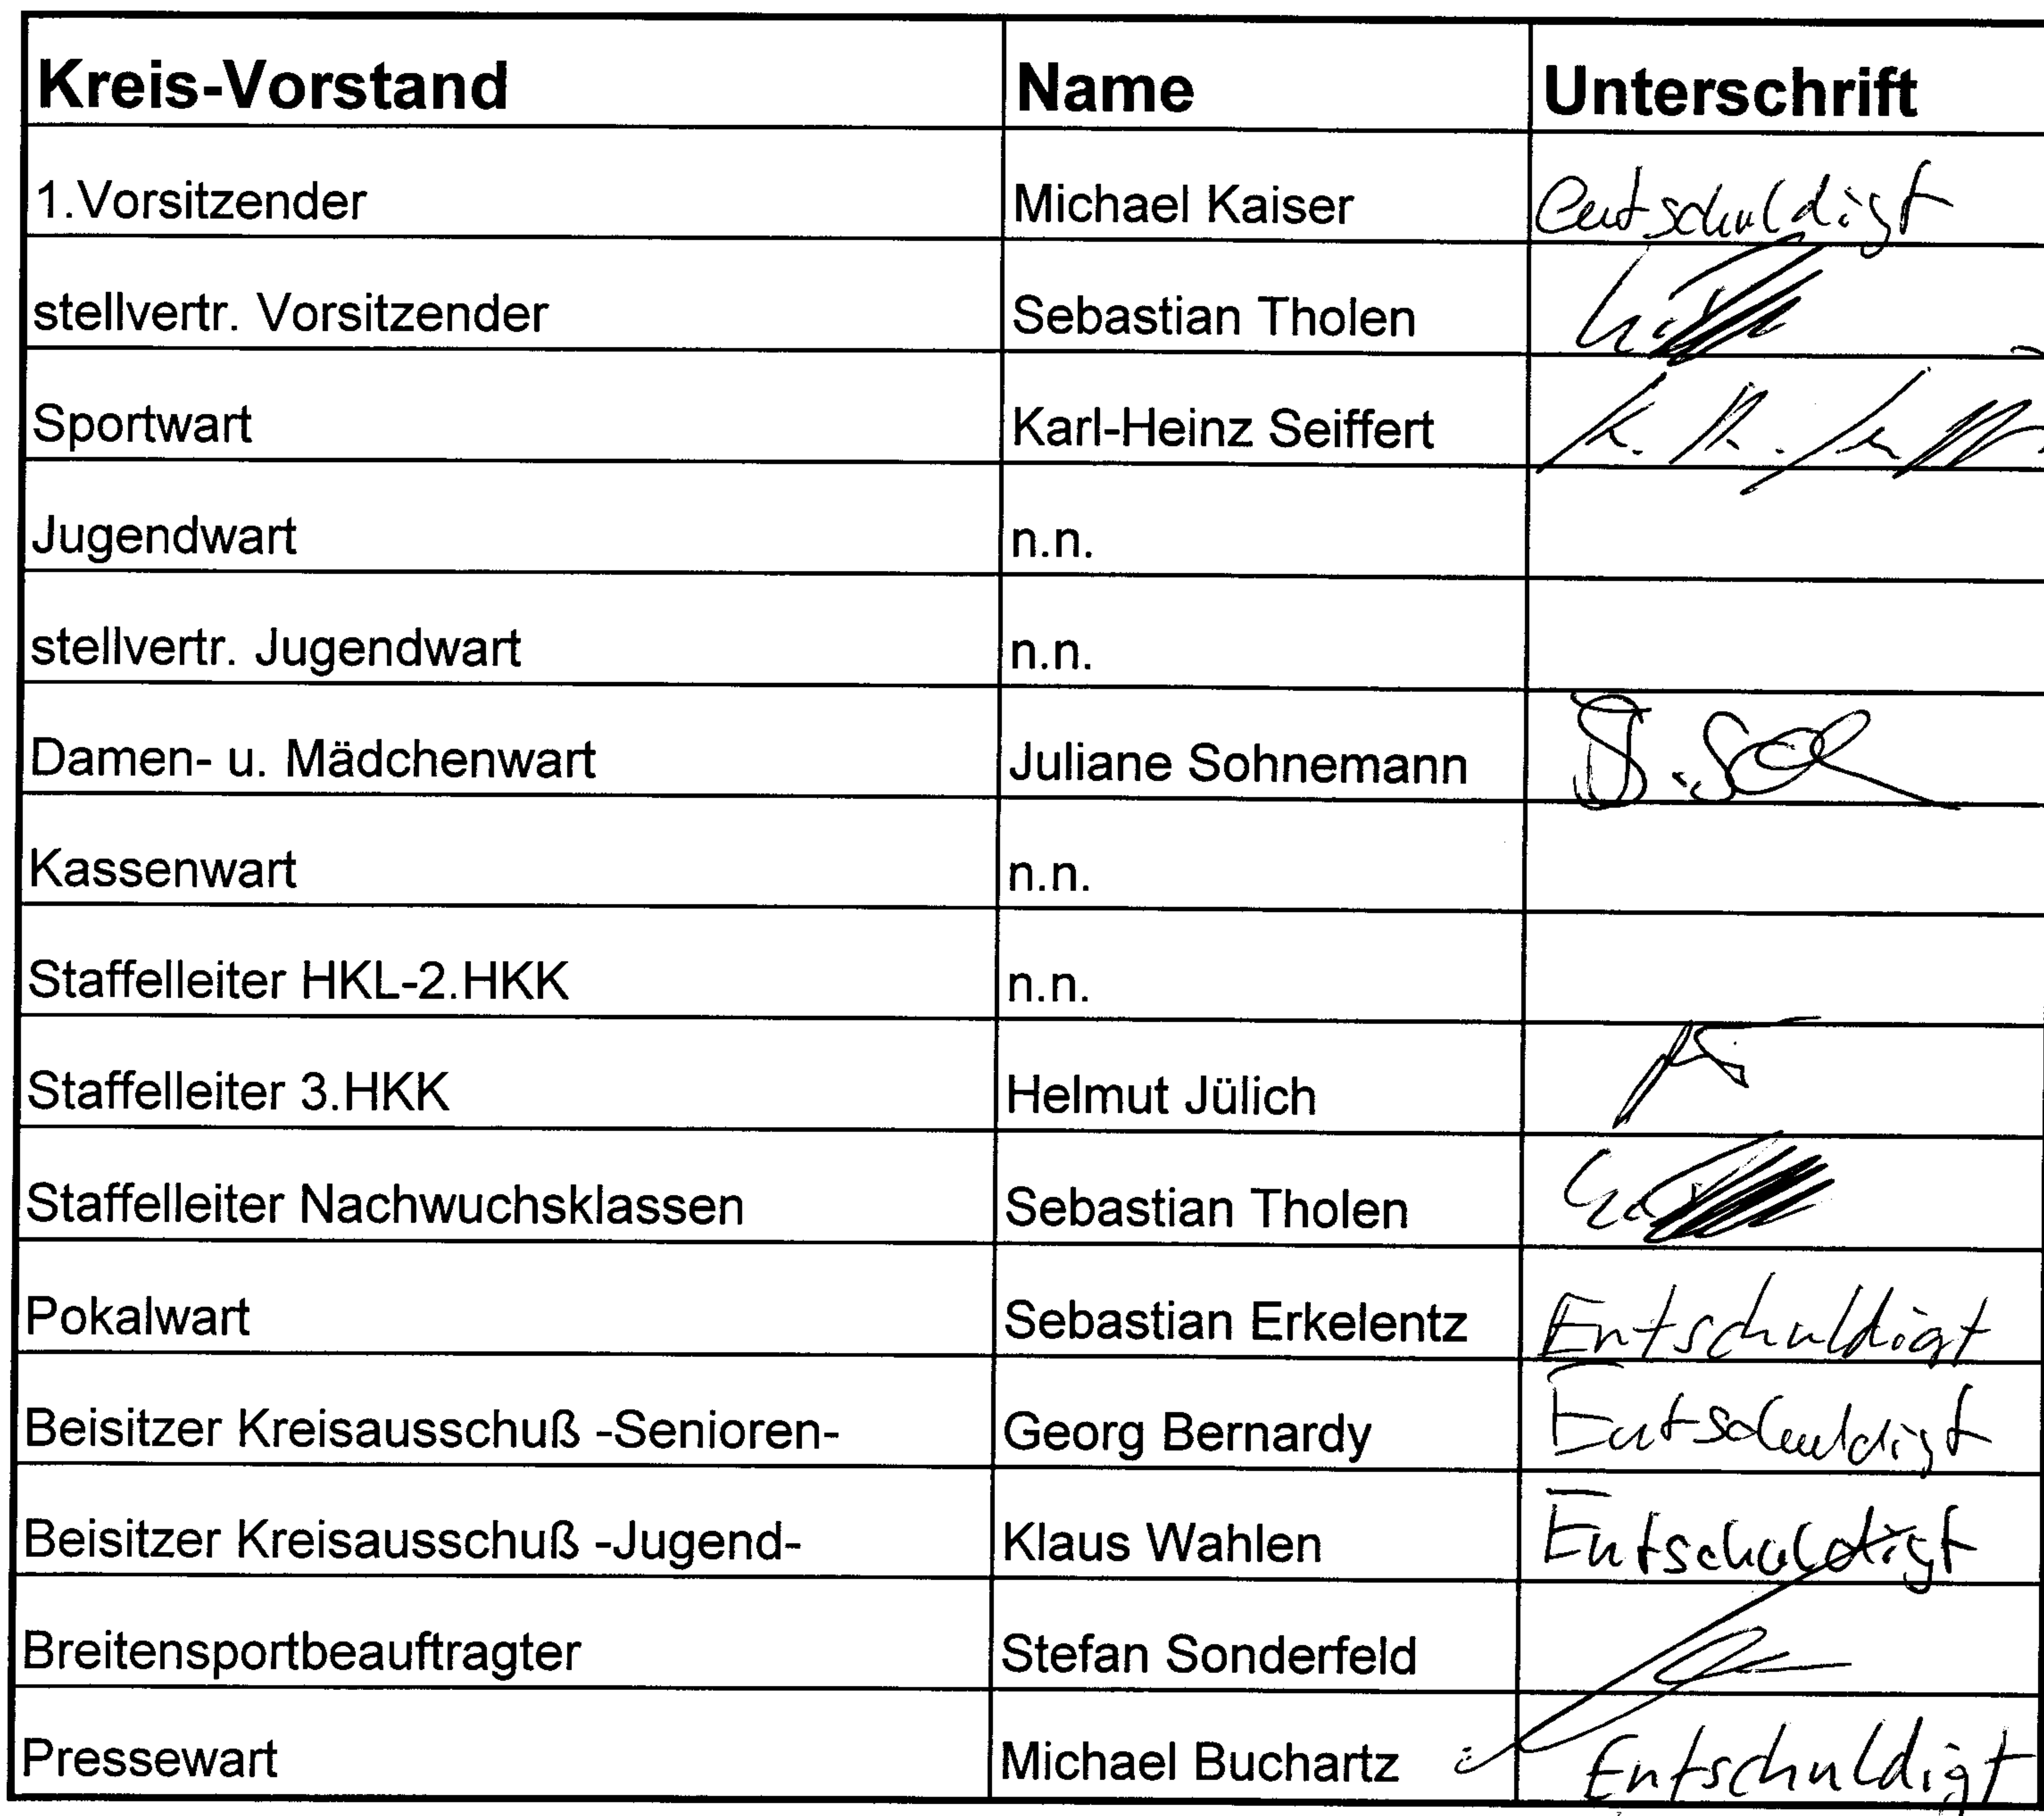 Kreis-Vorstand Name Unterschrift
1.Vorsitzender Michael Kaiser entschuldigt
stellvertr. Vorsitzender Sebastian Tholen
Sportwart Karl-Heinz Seiffert
Jugendwart n.n.
stellvertr. Jugendwart n.n.
Damen- u. Mädchenwart Juliane Sohnemann
Kassenwart n.n.
Staffelleiter HKL-2.HKK n.n.
Staffelleiter 3.HKK Helmut Jülich
Staffelleiter Nachwuchsklassen Sebastian Tholen
Pokalwart Sebastian Erkelentz Entschuldigt
Beisitzer Kreisausschuß -Senioren- Georg Bernardy Entschuldigt
Beisitzer Kreisausschuß -Jugend- Klaus Wahlen Entschuldigt
Breitensportbeauftragter Stefan Sonderfeld
Pressewart Michael Buchartz Entschuldigt